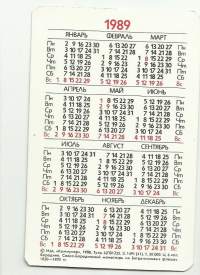 1989
ЯНВАРЬ ФЕВРАЛЬ МАРТ
Пн 2 9 16 23 30 6 13 20 27 6 13 20 27
Вт 3 10 17 24 31 7 14 21 28 7 14 21 28
Ср 4 11 18 25 1 8 15 22 1 8 15 22 29
Чт 5 12 19 26 2 9 16 23 2 9 16 23 30
Пт 6 13 20 27 3 10 17 24 3 10 17 24 31
Сб 7 14 21 28 4 11 18 25 4 11 18 25
Вс 1 8 15 22 29 5 12 19 26 5 12 19 26
АПРЕЛЬ МАЙ ИЮНЬ
Пн 3 10 17 24 1 8 15 22 29 5 12 19 26
Вт 4 11 18 25 2 9 16 23 30 6 13 20 27
Ср 5 12 19 26 3 10 17 24 31 7 14 21 28
Чт 6 13 20 27 4 11 18 25 1 8 15 22 29
Пт 7 14 21 28 5 12 19 26 2 9 16 23 30
Сб 1 8 15 22 29 6 13 20 27 3 10 17 24
Вс 2 9 16 23 30 7 14 21 28 4 11 18 25
ИЮЛЬ АВГУСТ СЕНТЯБРЬ
Пн 3 10 17 24 31 7 14 21 28 4 11 18 25
Вт 4 11 18 25 1 8 15 22 29 5 12 19 26
Ср 5 12 19 26 2 9 16 23 30 6 13 20 27
Чт 6 13 20 27 3 10 17 24 31 7 14 21 28
Пт 7 14 21 28 4 11 18 25 1 8 15 22 29
Сб 1 8 15 22 29 5 12 19 26 2 9 16 23 30
Вс 2 9 16 23 30 6 13 20 27 3 10 17 24
ОКТЯБРЬ НОЯБРЬ ДЕКАБРЬ
Пн 2 9 16 23 30 6 13 20 27 4 11 18 25
Вт 3 10 17 24 31 7 14 21 28 5 12 19 26
Ср 4 11 18 25 1 8 15 22 29 6 13 20 27
Чт 5 12 19 26 2 9 16 23 30 7 14 21 28
Пт 6 13 20 27 3 10 17 24 1 8 15 22 29
Сб 7 14 21 28 4 11 18 25 2 9 16 23 30
Вс 1 8 15 22 29 5 12 19 26 3 10 17 24 31